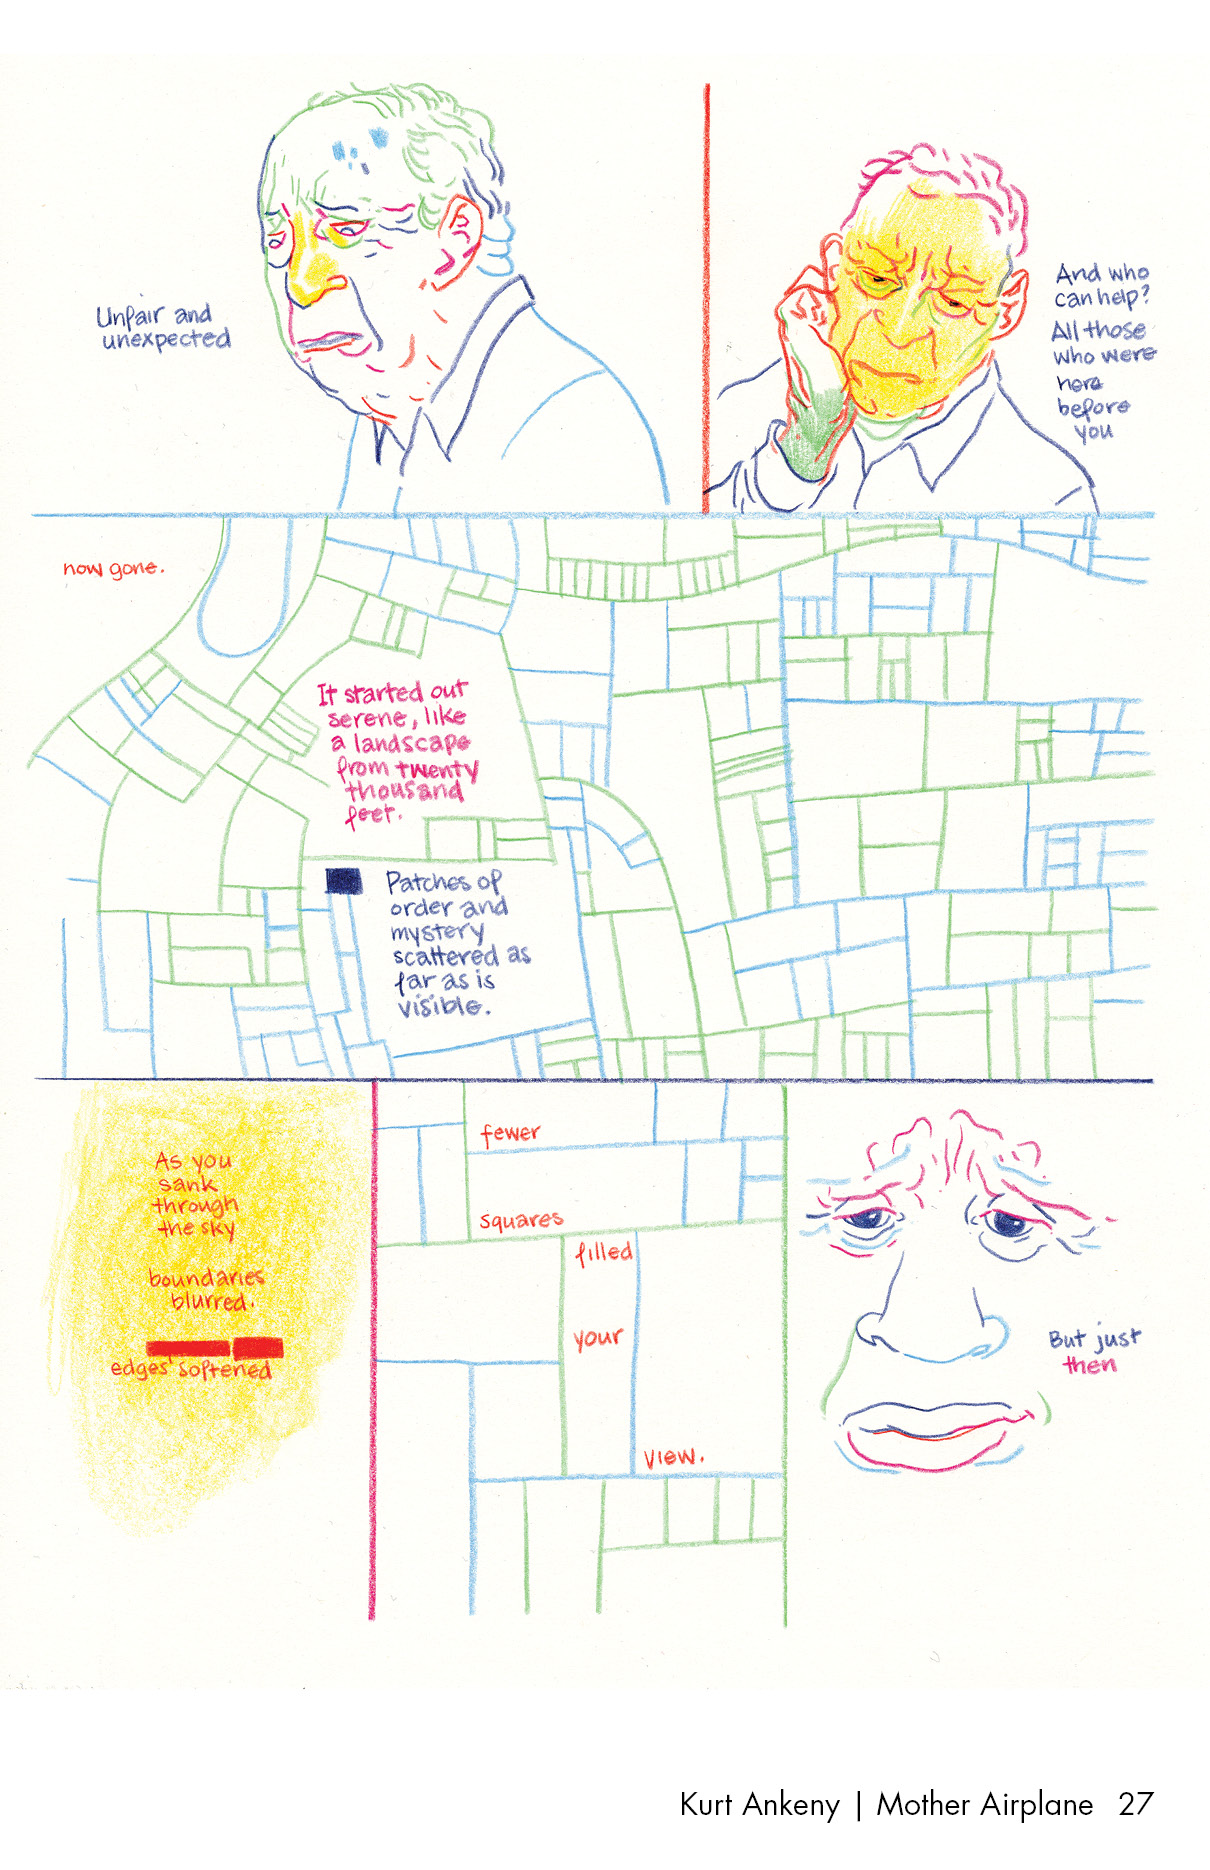 Unfair and
unexpected
And who
can help?
All those
who were
here
before
you
now gone.
It started out
serene, like
a landscape
from twenty
thousand
feet.
Patches of
order and
mystery
scattered as
far as is
visible.
As you
sank
through
the sky
boundaries
blurred.
edges softened
fewer
squares
filled
your
view.
But just
then
Kurt Ankeny | Mother Airplane 27